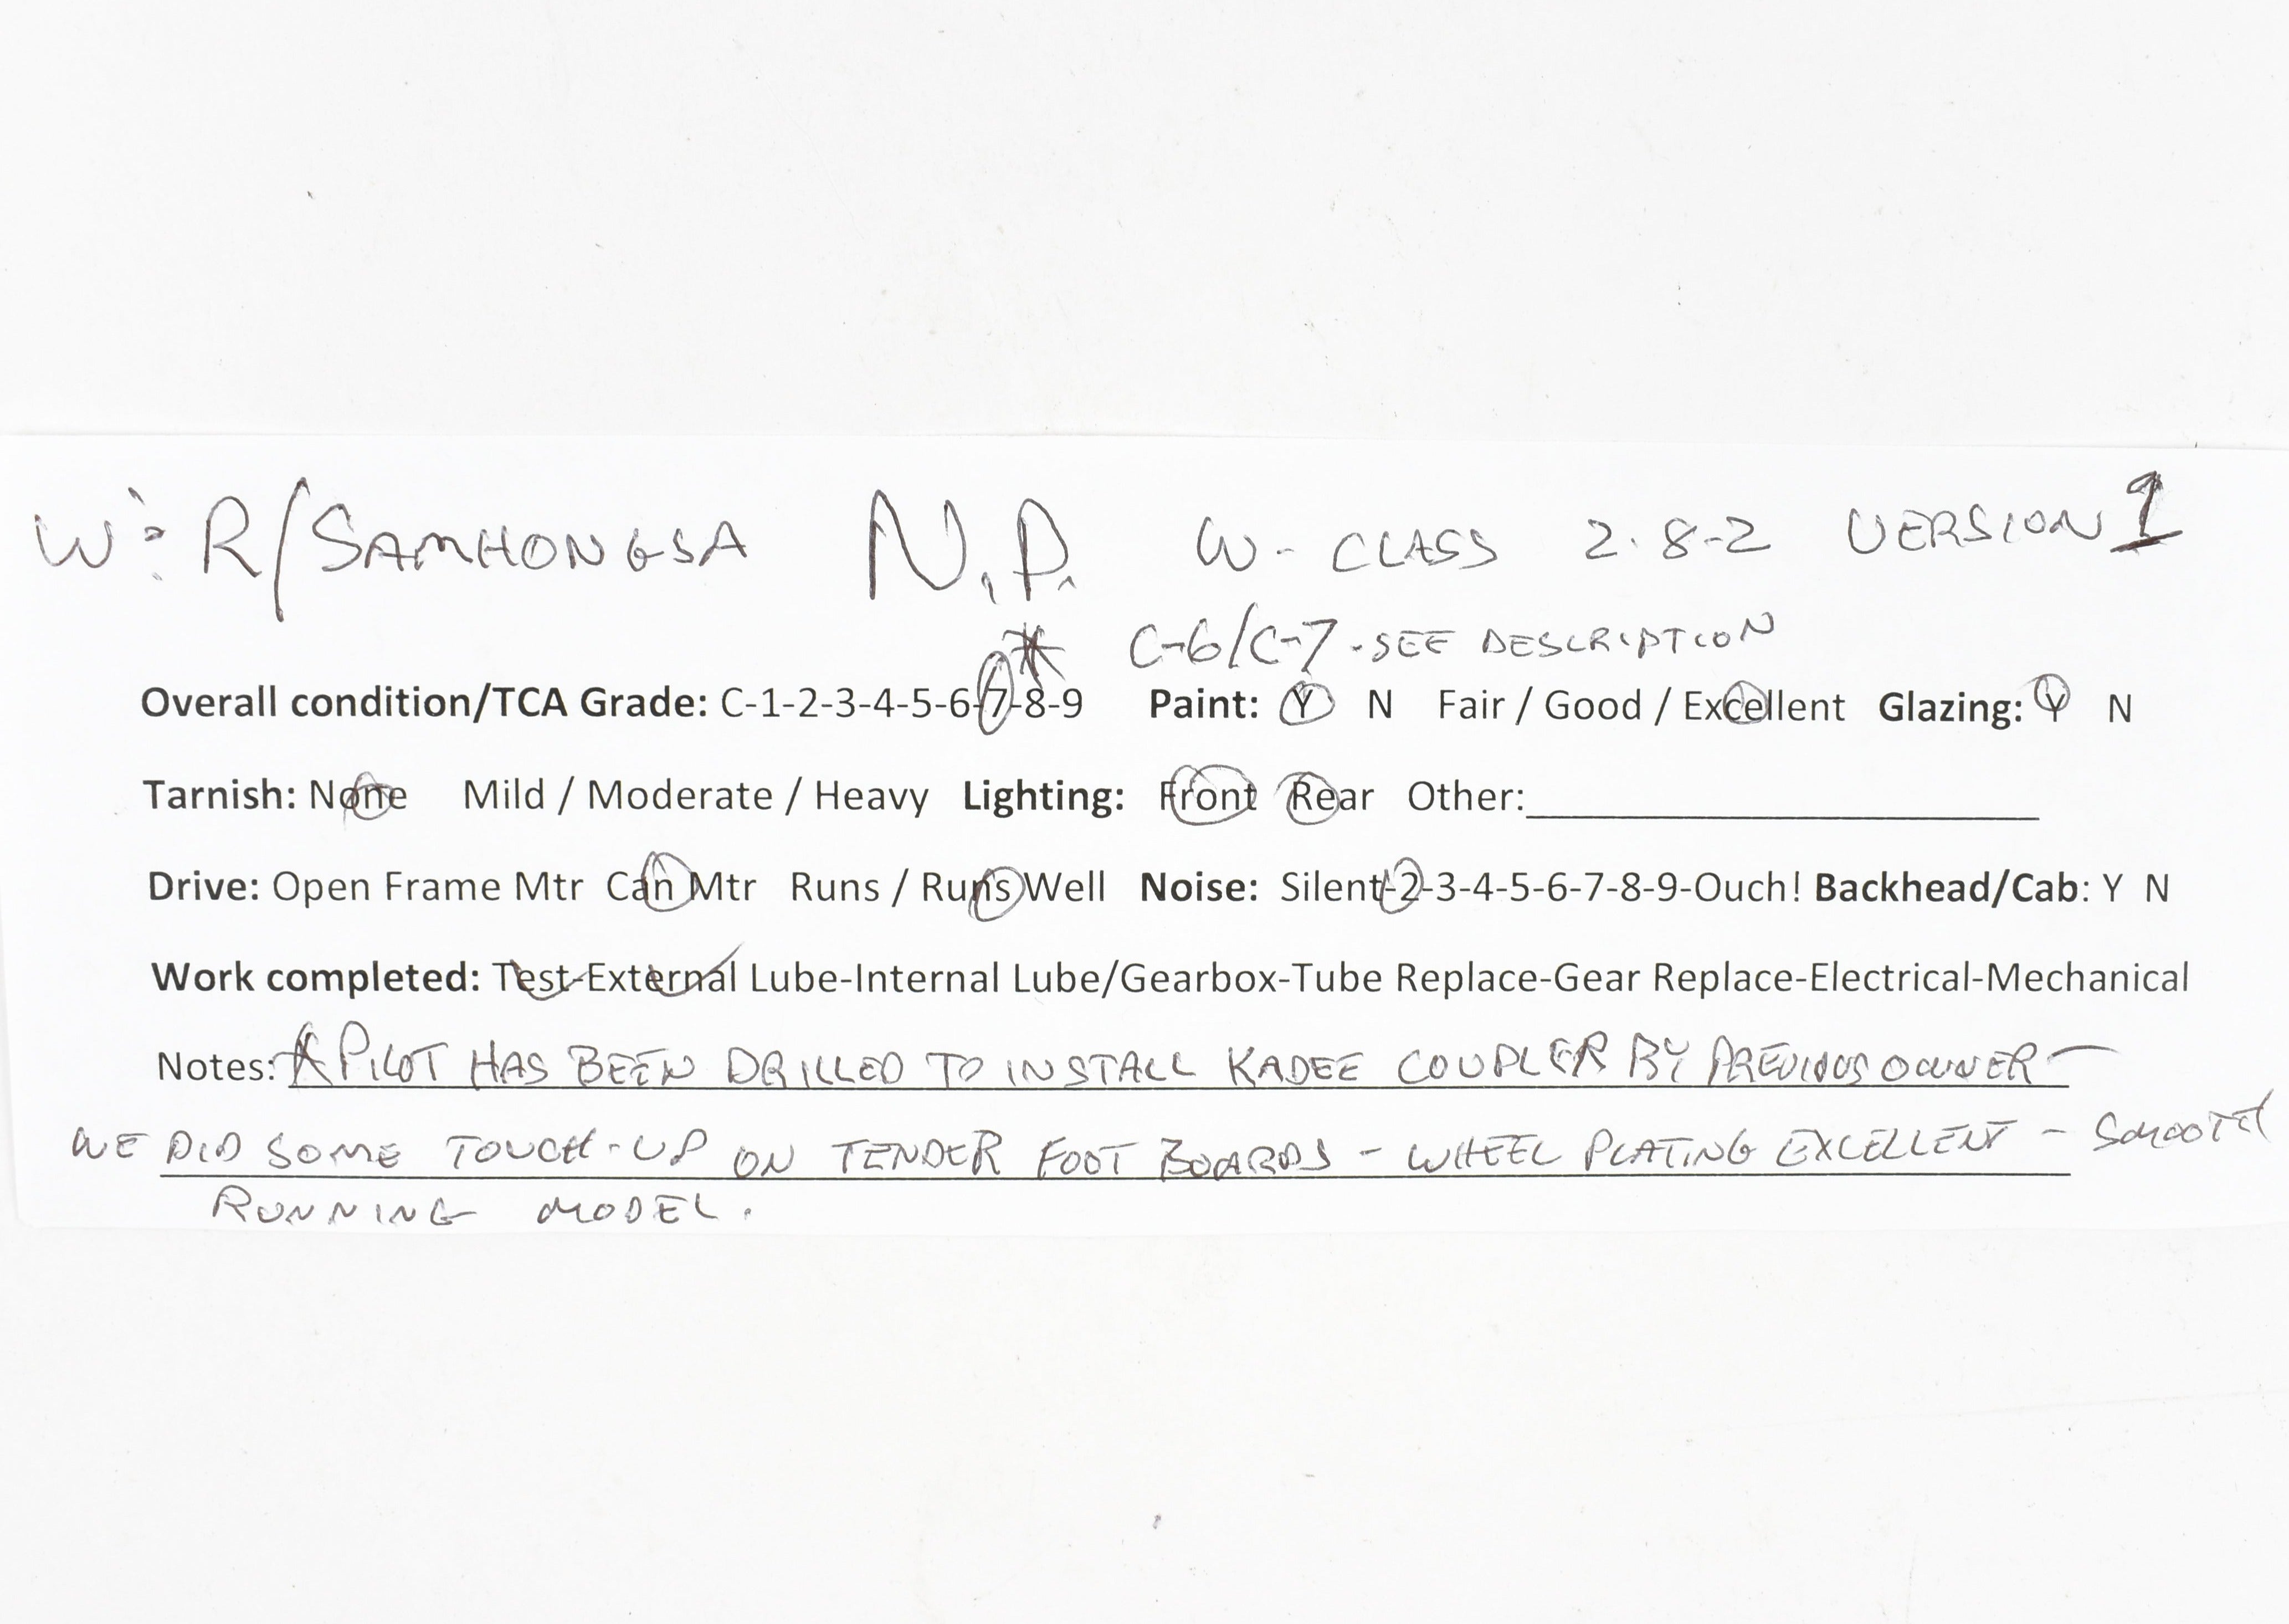 W:R/SAMHONGSA N.P. W-CLASS 2-8-2 VERSION 1
* C-6/C-7 - SEE DESCRIPTION
Overall condition/TCA Grade: C-1-2-3-4-5-6-7-8-9 Paint: Y N Fair / Good / Excellent Glazing: Y N
Tarnish: None Mild / Moderate / Heavy Lighting: Front Rear Other:
Drive: Open Frame Mtr Can Mtr Runs / Runs Well Noise: Silent-2-3-4-5-6-7-8-9-Ouch! Backhead/Cab: Y N
Work completed: Test-External Lube-Internal Lube/Gearbox-Tube Replace-Gear Replace-Electrical-Mechanical
Notes: * PILOT HAS BEEN DRILLED TO INSTALL KADEE COUPLER BY PREVIOUS OWNER -
WE DID SOME TOUCH-UP ON TENDER FOOT BOARDS - WHEEL PLATING EXCELLENT - SMOOTH
RUNNING MODEL.